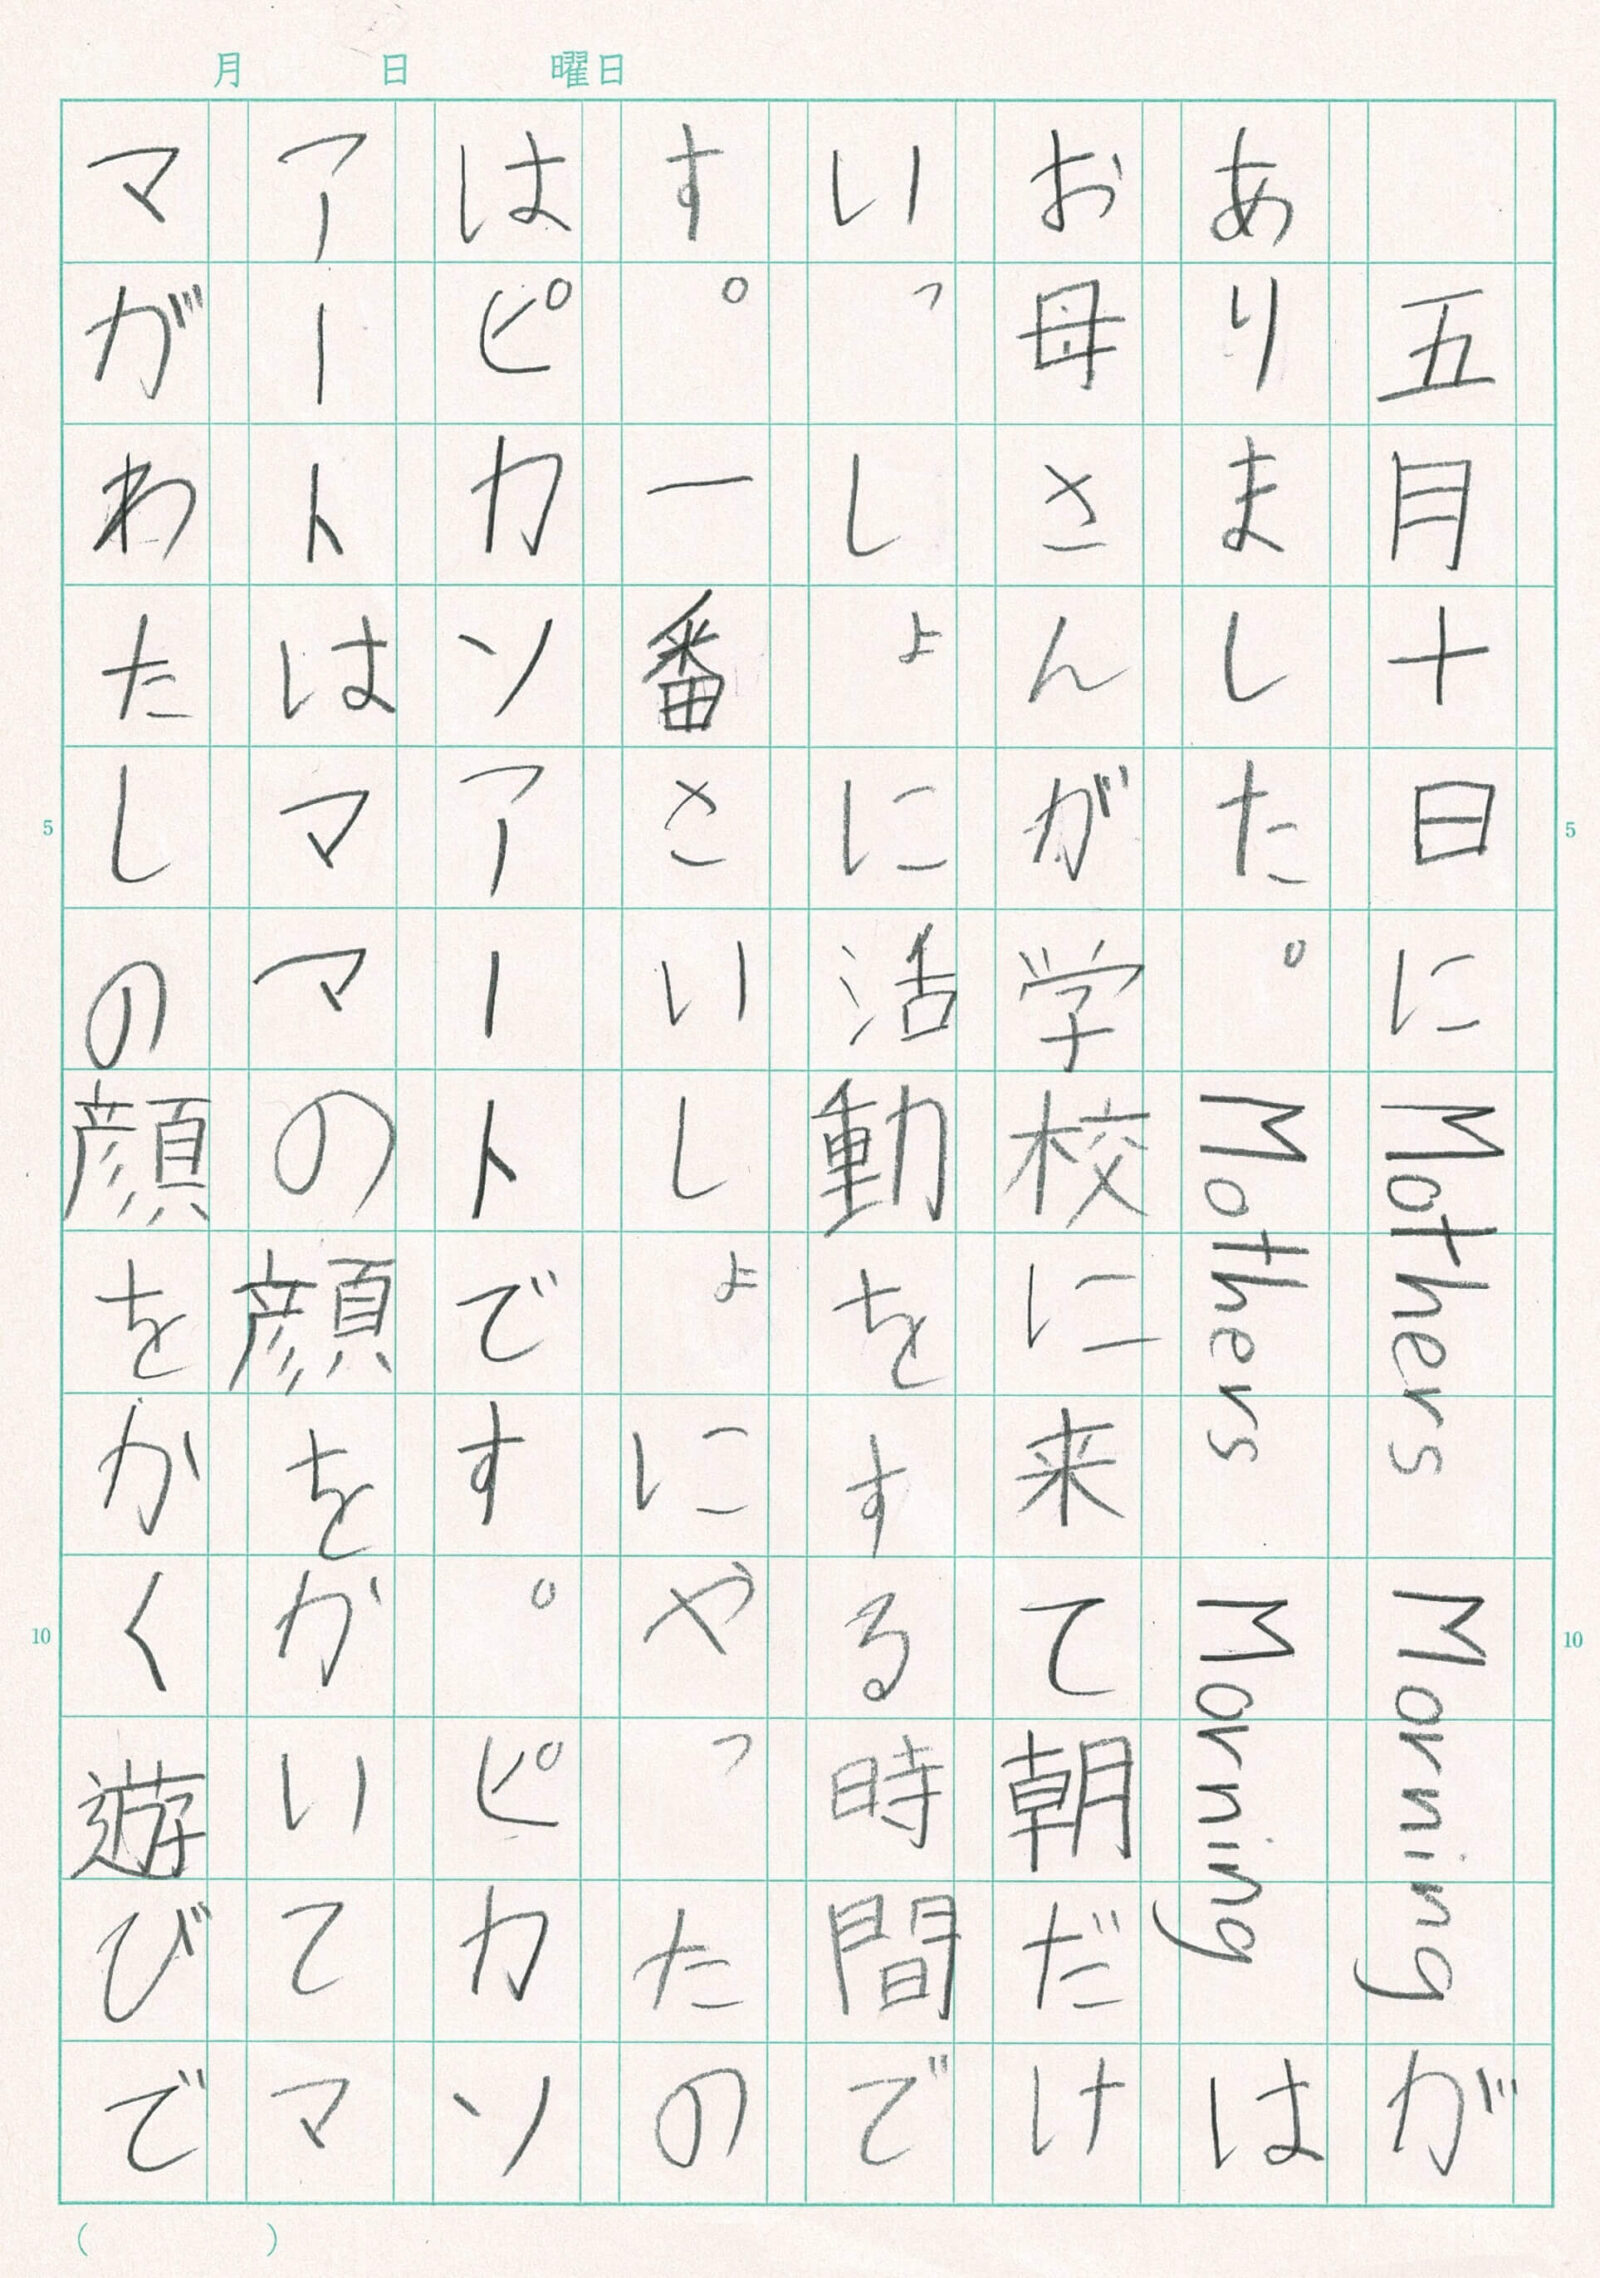 月 日 曜日
五月十日にMothers Morningが
ありました。Mothers Morningは
お母さんが学校に来て朝だけ
いっしょに活動をする時間で
す。一番さいしょにやったの
はピカソアートです。ピカソ
アートはママの顔をかいてマ
マがわたしの顔をかく遊びで
5
10
5
10
( )